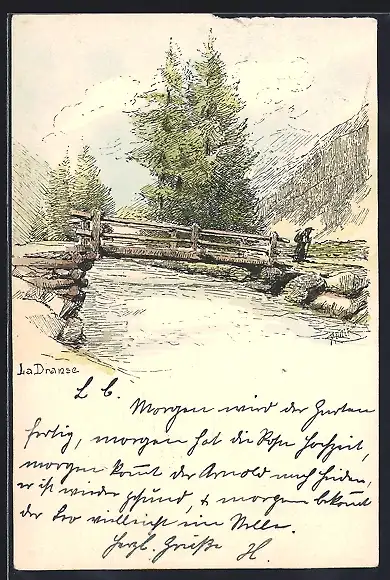 La Dranse
L. b.
Morgen wird der Garten
fertig, morgen hat die Hochzeit,
morgen kommt der Arnold nach Heiden,
er ist wieder gesund, & morgen bekommt
der Leo vielleicht ein Velo.
Herzl. Grüße H.